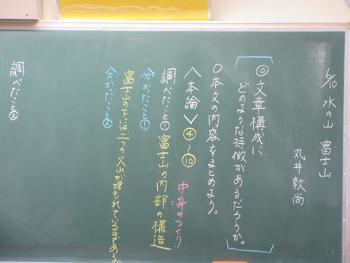 6/10 水の山 富士山
丸井敦尚
◎文章構成に
どのような特徴があるだろうか。
○本文の内容をまとめよう。
〈本論〉④〜⑩
中身のつくり
調べたこと① 富士山の内部の構造
分かったこと①
富士山の下には二つの火山が埋もれているのである
分かったこと②
調べたこと②